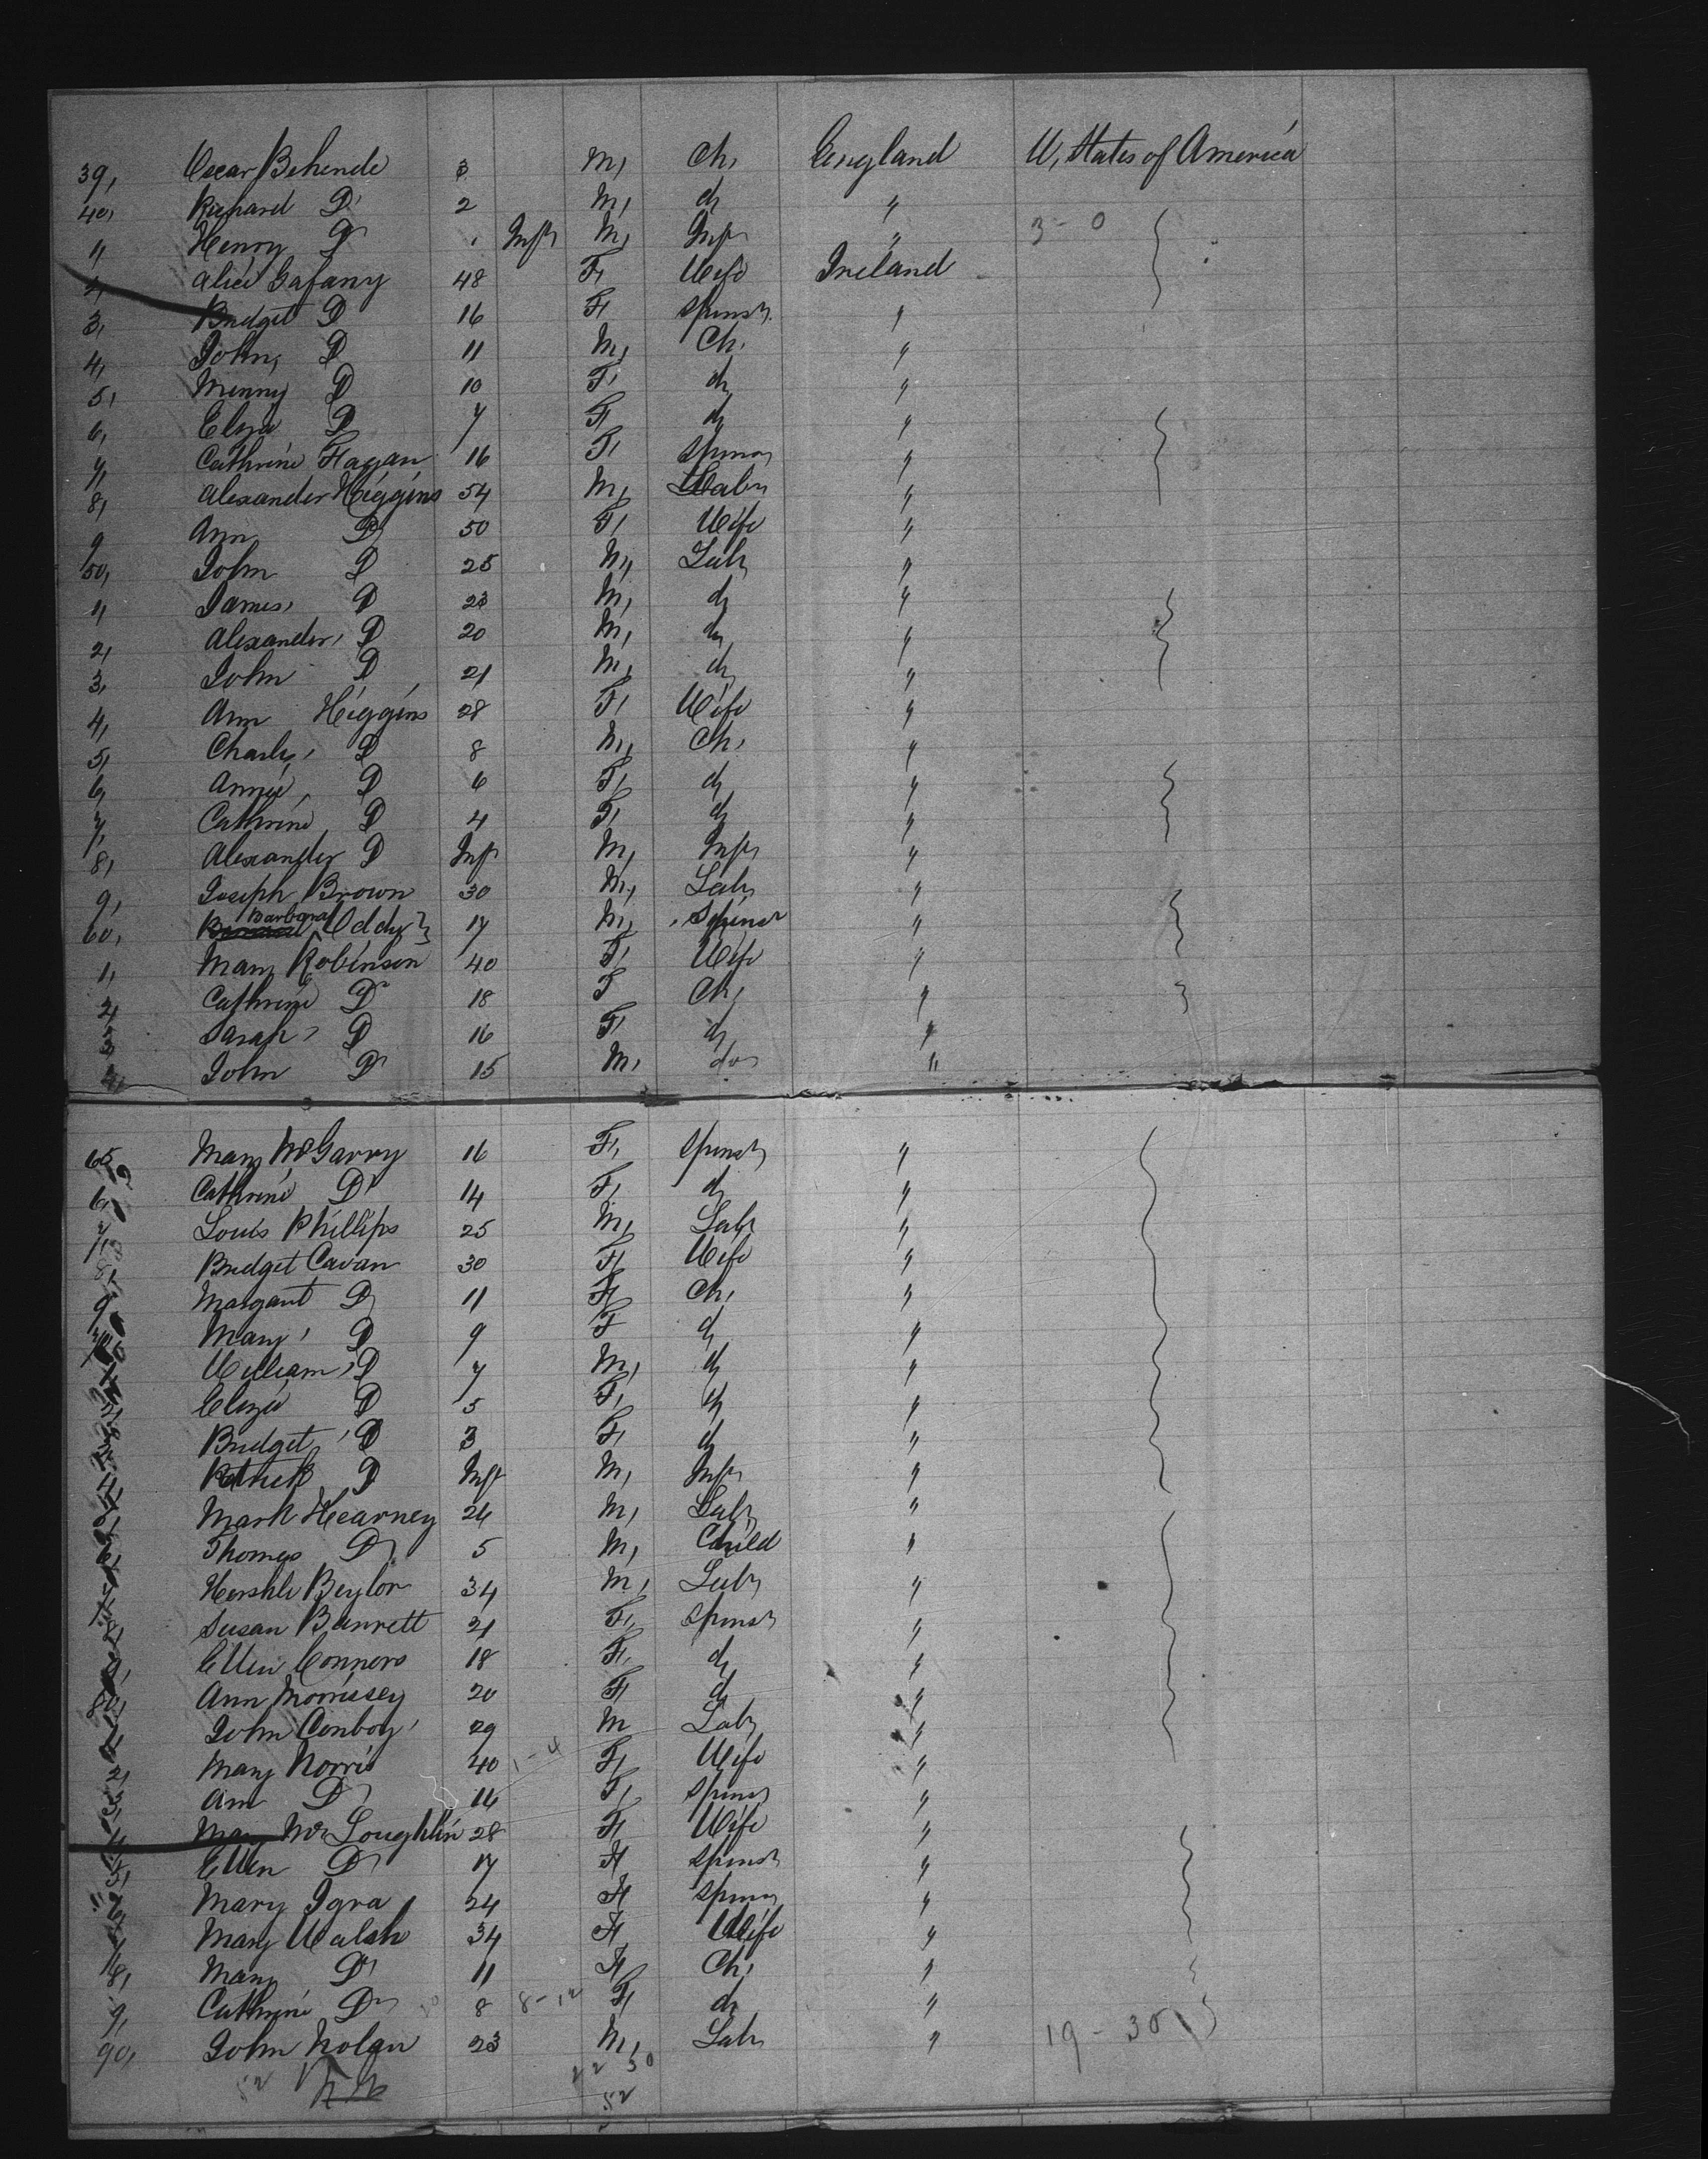 39, Oscar Behende 3 M, Ch, England U, States of America
40, Richard D 2 M, d "
1, Henry D Inft M, Inft " 3-0
2, Alice Gafany 48 F, Wife Ireland
3, Bridget D 16 F, Spinst "
4, John, D 11 M, Ch, "
5, Minny D 10 F, d "
6, Eliza D 7 F, d "
7, Cathrine Fagan 16 F, Spinst "
8, Alexander Higgins 54 M, Labr "
9 Ann D 50 F, Wife "
50, John D 25 M, Labr "
1, James, D 23 M, d "
2, Alexander, D 20 M, d "
3, John D 21 M, d "
4, Ann Higgins 28 F, Wife "
5, Charly, D 8 M, Ch, "
6, Annie, D 6 F, d "
7, Cathrine D 4 F, d "
8, Alexander D Inft M, Inft "
9, Joseph Brown 30 M, Labr "
60, Barbara Oddy 17 M, Spinst "
1, Mary Robinson 40 F, Wife "
2, Cathrine D 18 F Ch, "
3, Sarah, D 16 F, d "
4, John D 15 M, do "
65 Mary McGarry 16 F, Spinst "
6, Cathrine D 14 F, d "
7, Louis Phillips 25 M, Labr "
8, Bridget Cavan 30 F, Wife "
9, Margaret D 11 F, Ch, "
70 Mary, D 9 F d "
William, D 7 M, d "
2, Eliza D 5 F, d "
3, Bridget, D 3 F, d "
4, Patrick D Inft M, Inft "
5, Mark Kearney 24 M, Labr "
6, Thomas D 5 M, Child "
7, Hershle Beylor 34 M, Labr "
8, Susan Barrett 21 F, Spinst "
9, Ellen Connors 18 F, d "
80, Ann Morrissey 20 F, d "
1, John Conboy, 29 M Labr "
2, Mary Norris 40 1-4 F, Wife "
3, Ann D 16 F, Spinst "
4, Mary McLoughlin 28 F, Wife "
5, Ellen D 17 F, Spinst "
6, Mary Igra 24 F, Spinst "
7, Mary Walsh 34 F, Wife "
8, Mary D 11 F, Ch, "
9, Cathrine D 8 8-12 F, d "
90, John Nolan 23 M, Labr " 19-30
52 22 30
52